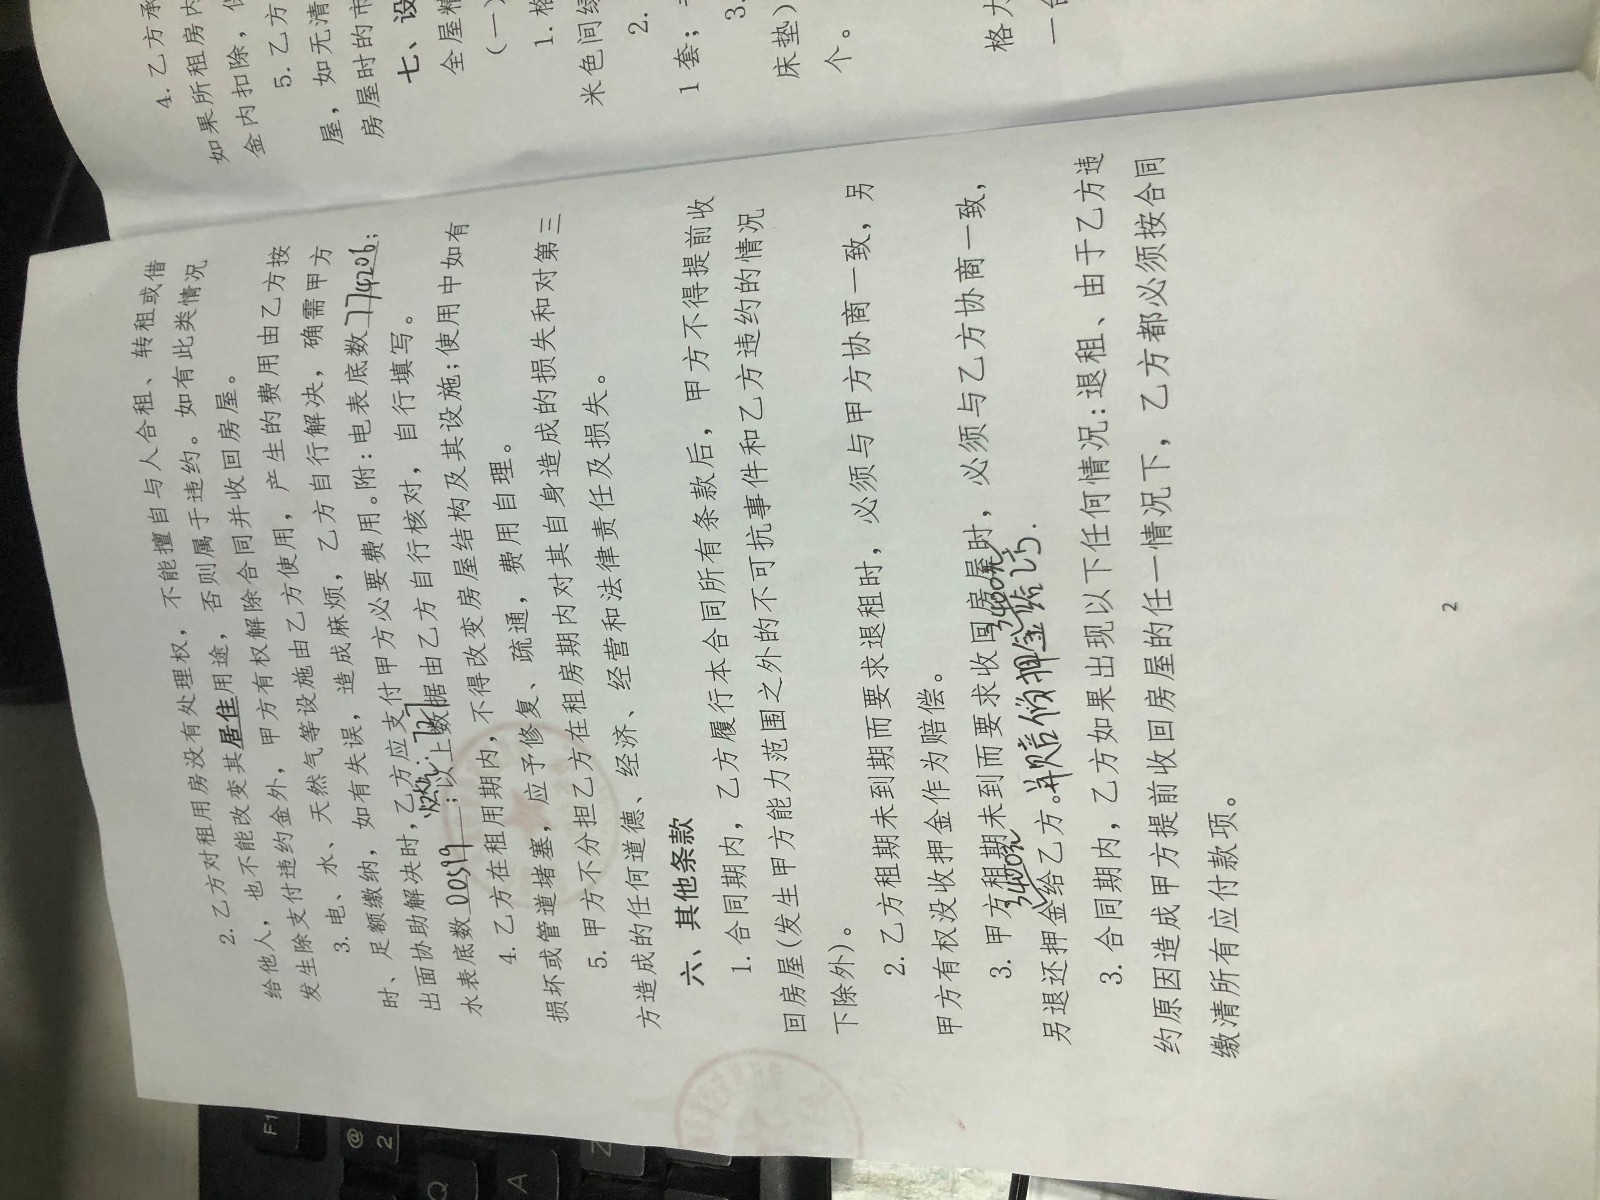 2. 乙方对租用房没有处理权，不能擅自与人合租、转租或借
给他人，也不能改变其居住用途，否则属于违约。如有此类情况
发生除支付违约金外，甲方有权解除合同并收回房屋。
3. 电、水、天然气等设施由乙方使用，产生的费用由乙方按
时、足额缴纳，如有失误，造成麻烦，乙方自行解决，确需甲方
出面协助解决时，乙方应支付甲方必要费用。附：电表底数
水表底数00519；以上数据由乙方自行核对，自行填写。
4. 乙方在租用期内，不得改变房屋结构及其设施；使用中如有
损坏或管道堵塞，应予修复、疏通，费用自理。
5. 甲方不分担乙方在租房期内对其自身造成的损失和对第三
方造成的任何道德、经济、经营和法律责任及损失。
六、其他条款
1. 合同期内，乙方履行本合同所有条款后，甲方不得提前收
回房屋（发生甲方能力范围之外的不可抗事件和乙方违约的情况
下除外）。
2. 乙方租期未到期而要求退租时，必须与甲方协商一致，另
甲方有权没收押金作为赔偿。
3. 甲方租期未到而要求收回房屋时，必须与乙方协商一致，
3400元 3400元
另退还押金给乙方。并赔偿1份押金给乙方.
3. 合同期内，乙方如果出现以下任何情况：退租、由于乙方违
约原因造成甲方提前收回房屋的任一情况下，乙方都必须按合同
缴清所有应付款项。
2
4. 乙方承
如果所租房内
金内扣除，
5. 乙方
屋，如无清
房屋时的市
七、设
全屋精
（一）
1. 格
米色间绿
2.
1 套；
3.
床垫）
个。
格力
一台
F1
@
2
Q
A
Z